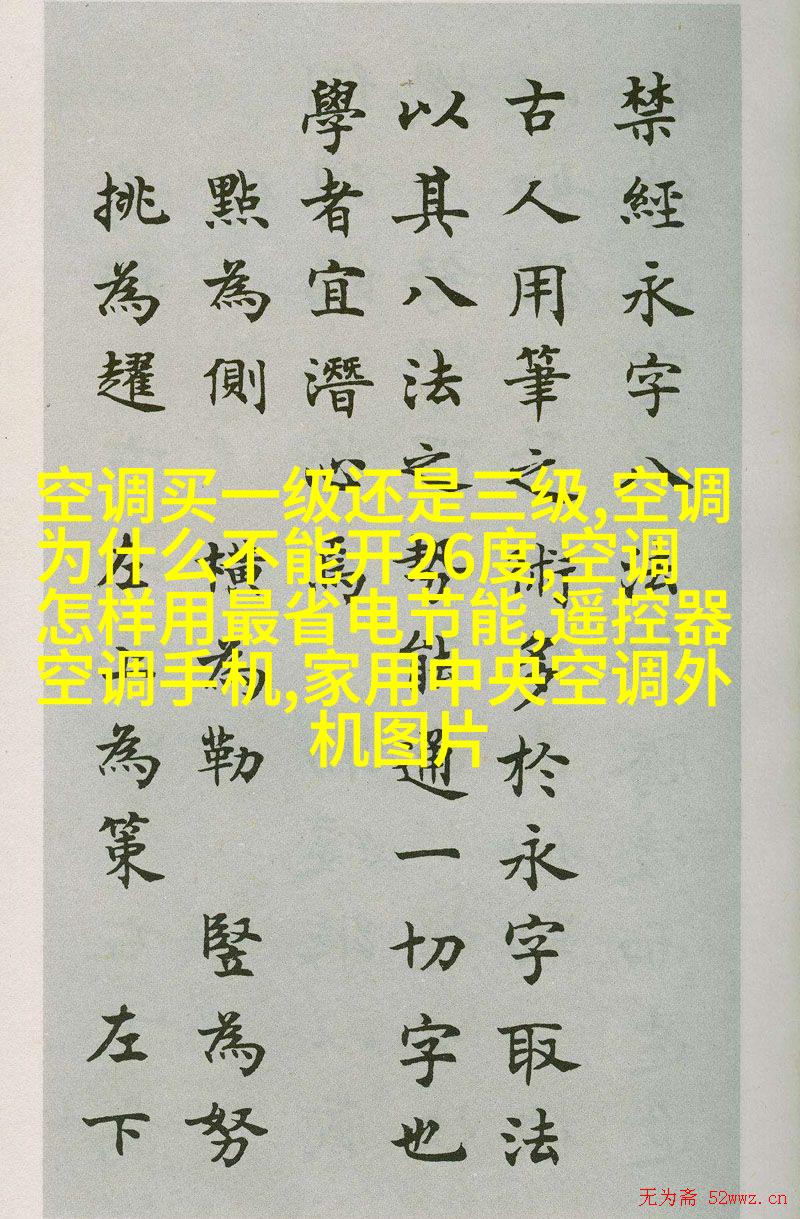 禁經永字八法
古人用筆之術多於永字取法
以其八法之勢能通一切字也
學者宜潛心焉
點為側 橫為勒 豎為努
挑為趯 左上為策 左下
空调买一级还是三级,空调
为什么不能开26度,空调
怎样用最省电节能,遥控器
空调手机,家用中央空调外
机图片
无为斋 52wwz.cn